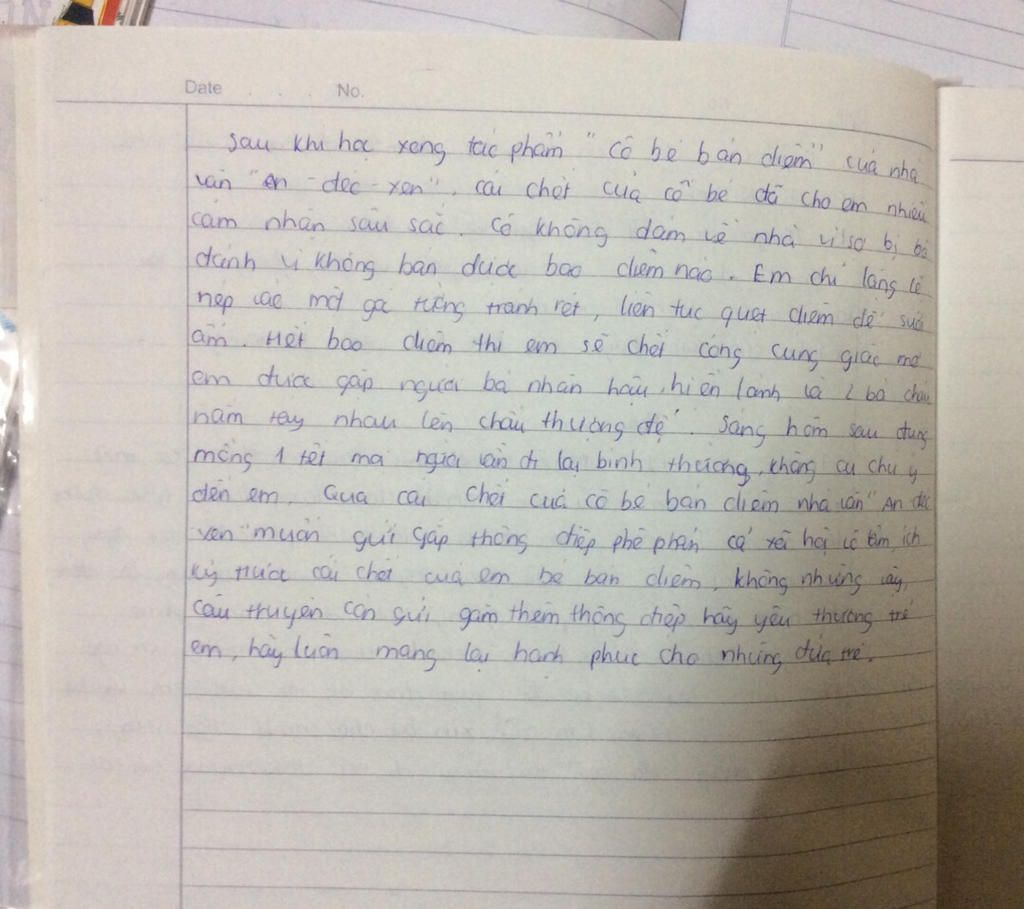 Date . . . No.
Sau khi học xong tác phẩm " Cô bé bán diêm" của nhà
văn "An - đéc - xen". cái chết của cô bé đã cho em nhiều
cảm nhận sâu sắc. Cô không dám về nhà vì sợ bị bố
đánh vì không bán được bao diêm nào. Em chỉ lặng lẽ
nép vào một góc tường tránh rét, liên tục quẹt diêm để sưởi
ấm. Hết bao diêm thì em sẽ chết cóng cùng giấc mơ
em được gặp người bà nhân hậu, hiền lành và 2 bà cháu
nắm tay nhau lên chầu thượng đế. Sáng hôm sau đúng
mồng 1 tết mà người vẫn đi lại bình thường, không ai chú ý
đến em. Qua cái chết của cô bé bán diêm nhà văn "An đéc
xen" muốn gửi gắp thông điệp phê phán cả xã hội vô tâm, ích
kỷ trước cái chết của em bé bán diêm, không những vậy,
câu truyện còn gửi gắm thêm thông điệp hãy yêu thương trẻ
em, hãy luôn mang lại hạnh phúc cho những đứa trẻ.